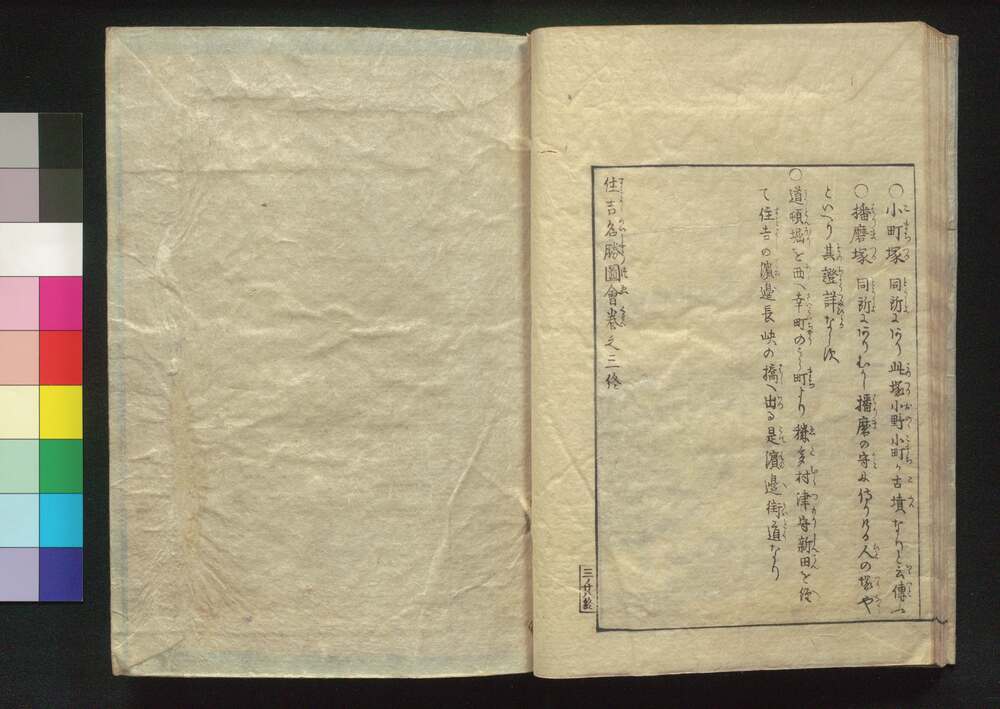 ○小町塚 同所にあり此塚小野小町が古墳なりと云傳ふ
○播磨塚 同所にありむかし播磨の守に任ける人の塚や
といへり其證詳ならず
○道頓堀を西へ幸町のうら町より穢多村津守新田を経
て住吉の濱邊長峡の橋へ出る是濱邊街道なり
住吉名勝圖會巻之三終
三ノ終